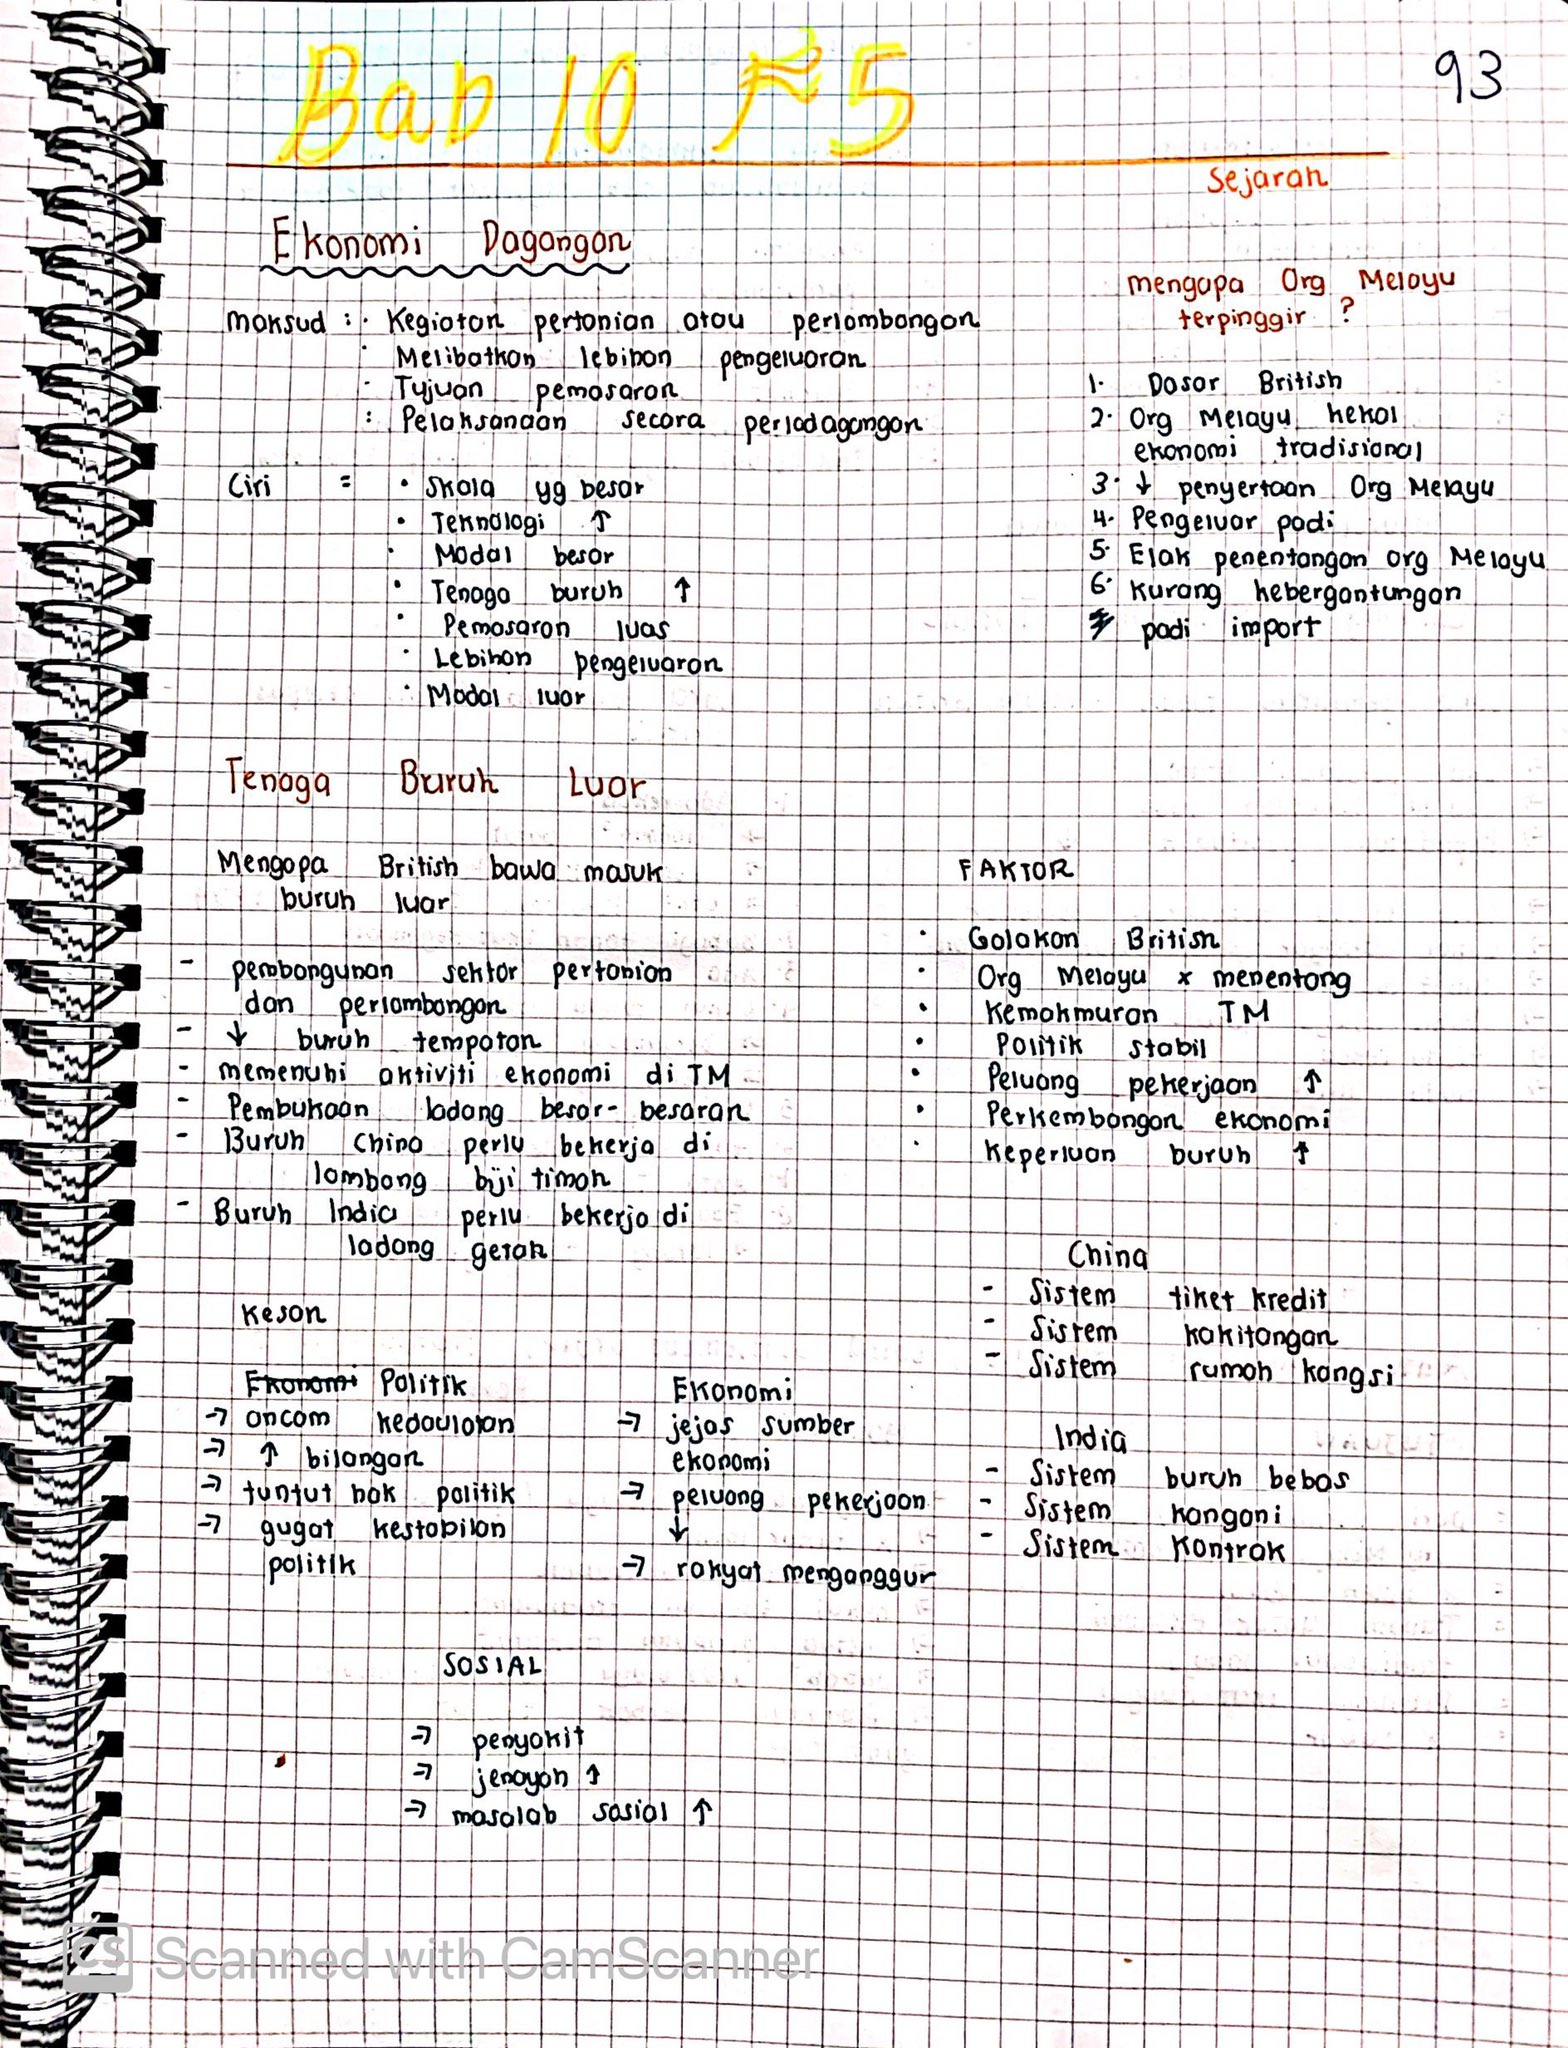 93
Bab 10 T5
Sejarah
Ekonomi Dagangan
maksud : · Kegiatan pertanian atau perlombongan
· Melibatkan lebihan pengeluaran
· Tujuan pemasaran
: Pelaksanaan secara perladagangan
Ciri = · Skala yg besar
· Teknologi ↑
· Modal besar
· Tenaga buruh ↑
· Pemasaran luas
· Lebihan pengeluaran
· Modal luar
mengapa Org Melayu
terpinggir ?
1. Dasar British
2. Org Melayu kekal
ekonomi tradisional
3. ↓ penyertaan Org Melayu
4. Pengeluar padi
5. Elak penentangan org Melayu
6. Kurang kebergantungan
padi import
Tenaga Buruh Luar
Mengapa British bawa masuk
buruh luar
- pembangunan sektor pertanian
dan perlombongan
- ↓ buruh tempatan
- memenuhi aktiviti ekonomi di TM
- Pembukaan ladang besar-besaran
- Buruh China perlu bekerja di
lombong biji timah
- Buruh India perlu bekerja di
ladang getah
FAKTOR
· Galakan British
· Org Melayu x menentang
· Kemakmuran TM
· Politik stabil
· Peluang pekerjaan ↑
· Perkembangan ekonomi
· Keperluan buruh ↑
China
- Sistem tiket kredit
- Sistem kakitangan
- Sistem rumah kongsi
India
- Sistem buruh bebas
- Sistem kangani
- Sistem Kontrak
Kesan
Ekonomi Politik
→ ancam kedaulatan
→ ↑ bilangan
→ tuntut hak politik
→ gugat kestabilan
politik
Ekonomi
→ jejas sumber
ekonomi
→ peluang pekerjaan
↓
→ rakyat menganggur
SOSIAL
→ penyakit
→ jenayah ↑
→ masalah sosial ↑
CS Scanned with CamScanner